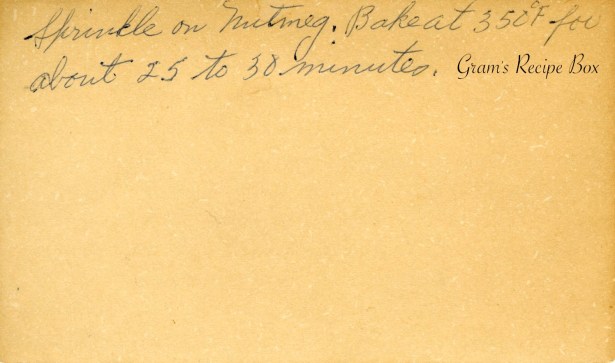 Sprinkle on Nutmeg. Bake at 350°F for
about 25 to 30 minutes.
Gram's Recipe Box